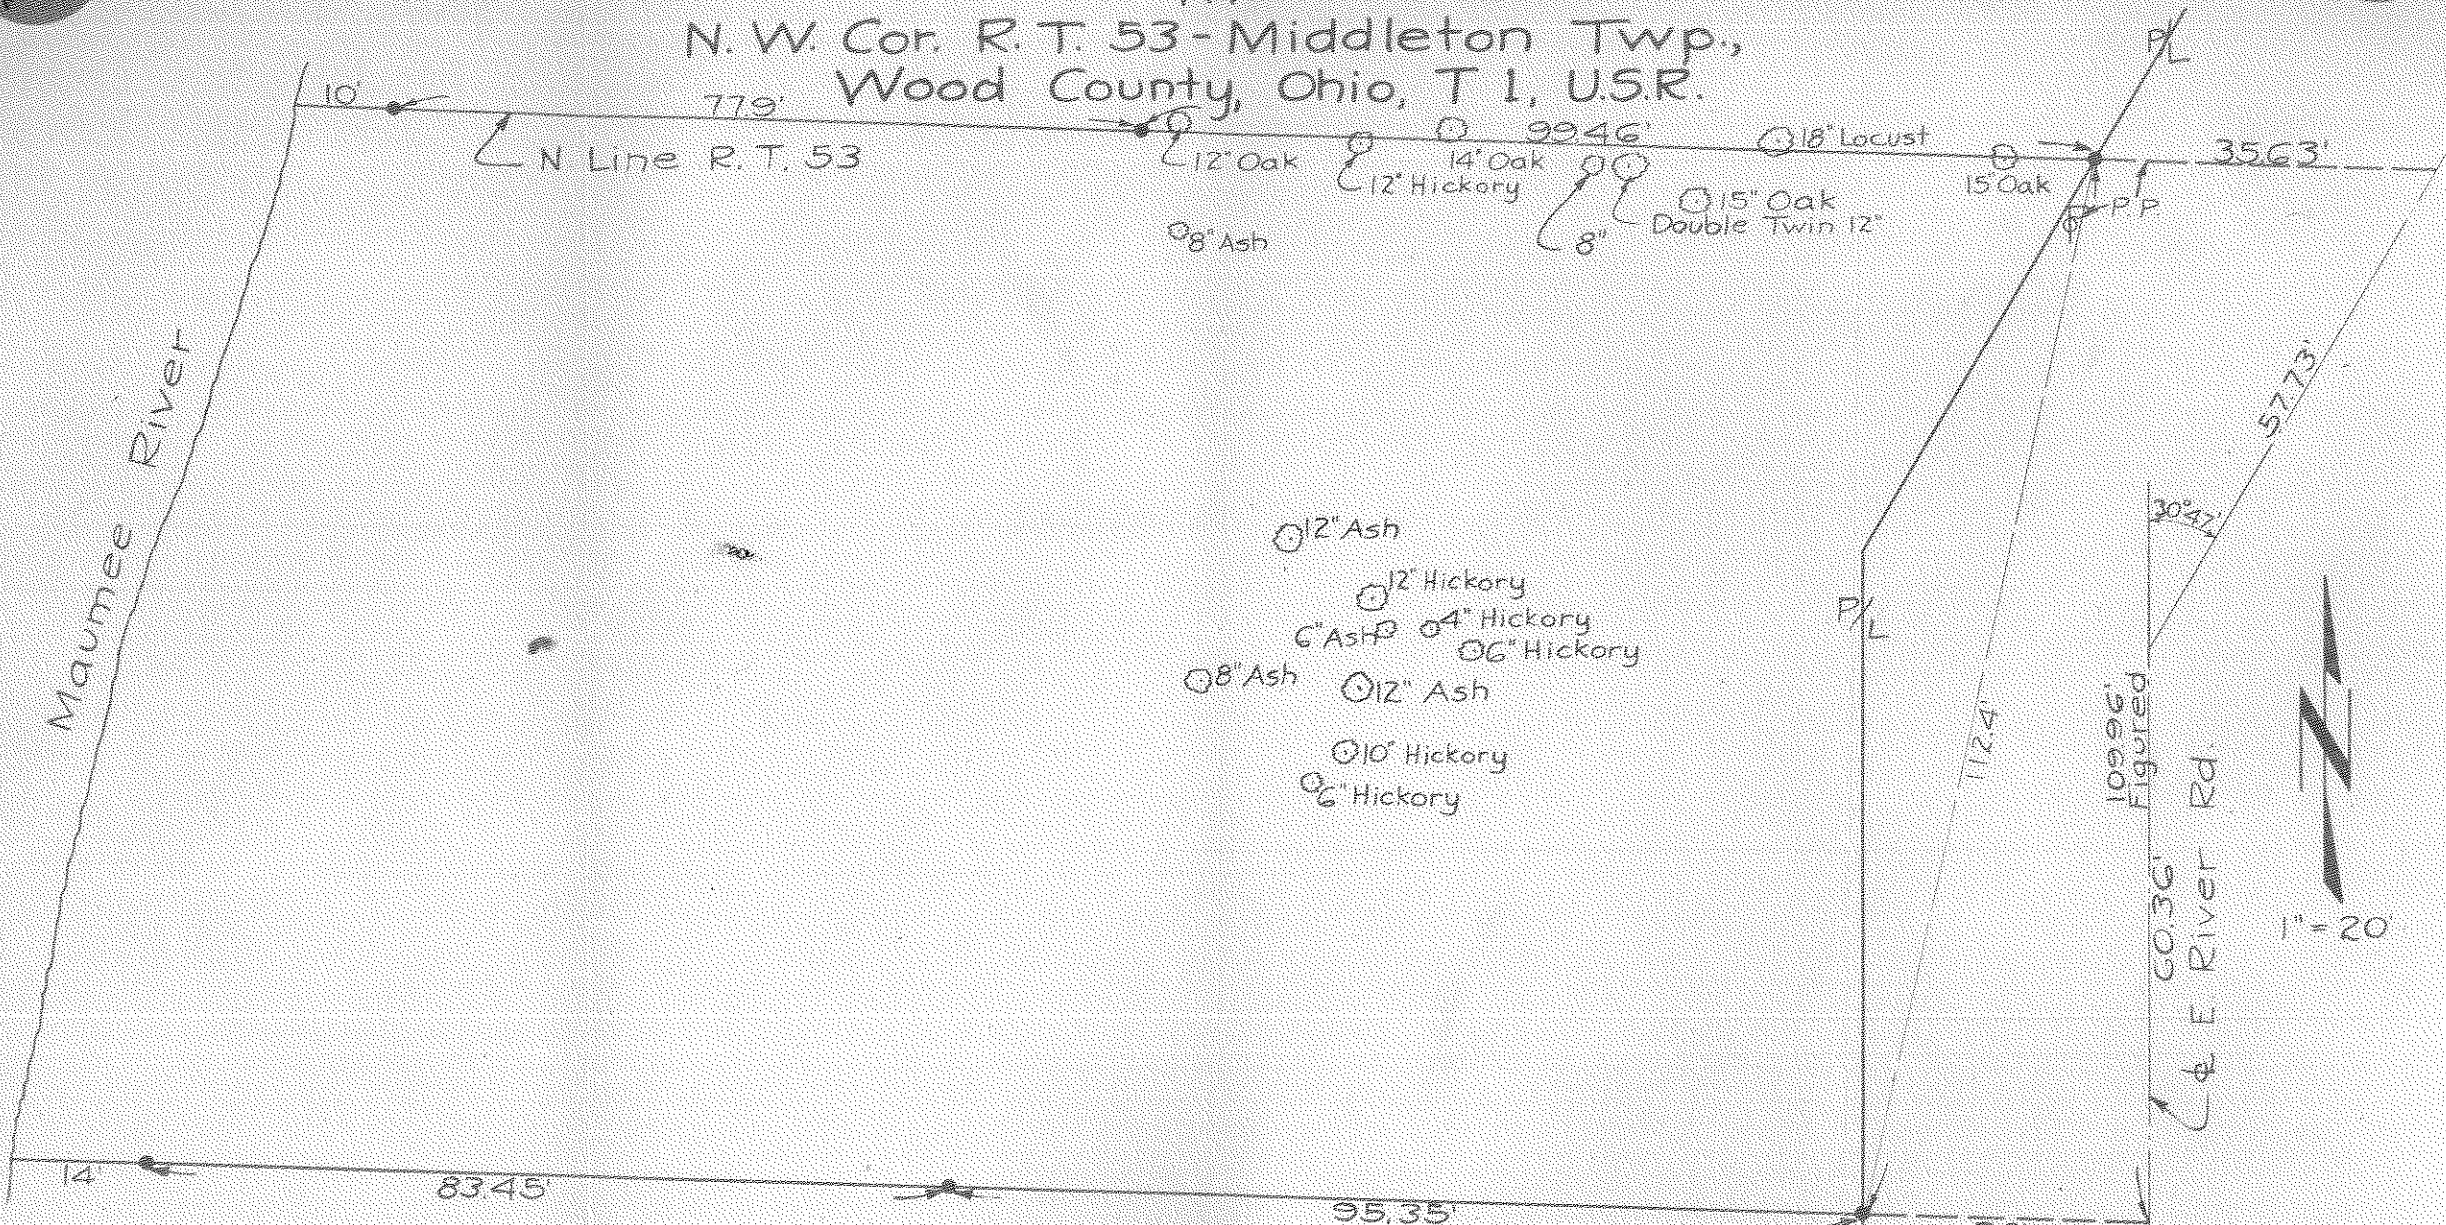 N. W. Cor. R. T. 53 - Middleton Twp.,
Wood County, Ohio, T 1, U.S.R.
P/L
10'
77.9'
99.46'
18" Locust
35.63'
N Line R. T. 53
12" Oak
12" Hickory
14" Oak
15" Oak
15" Oak
P P
8" Ash
8"
Double Twin 12"
Maumee River
57.73'
30°47'
12" Ash
12" Hickory
4" Hickory
6" Ash
6" Hickory
P/L
8" Ash
12" Ash
10" Hickory
6" Hickory
112.4'
109.96'
Figured
60.36'
℄ E River Rd.
N
1" = 20'
14'
83.45'
95.35'